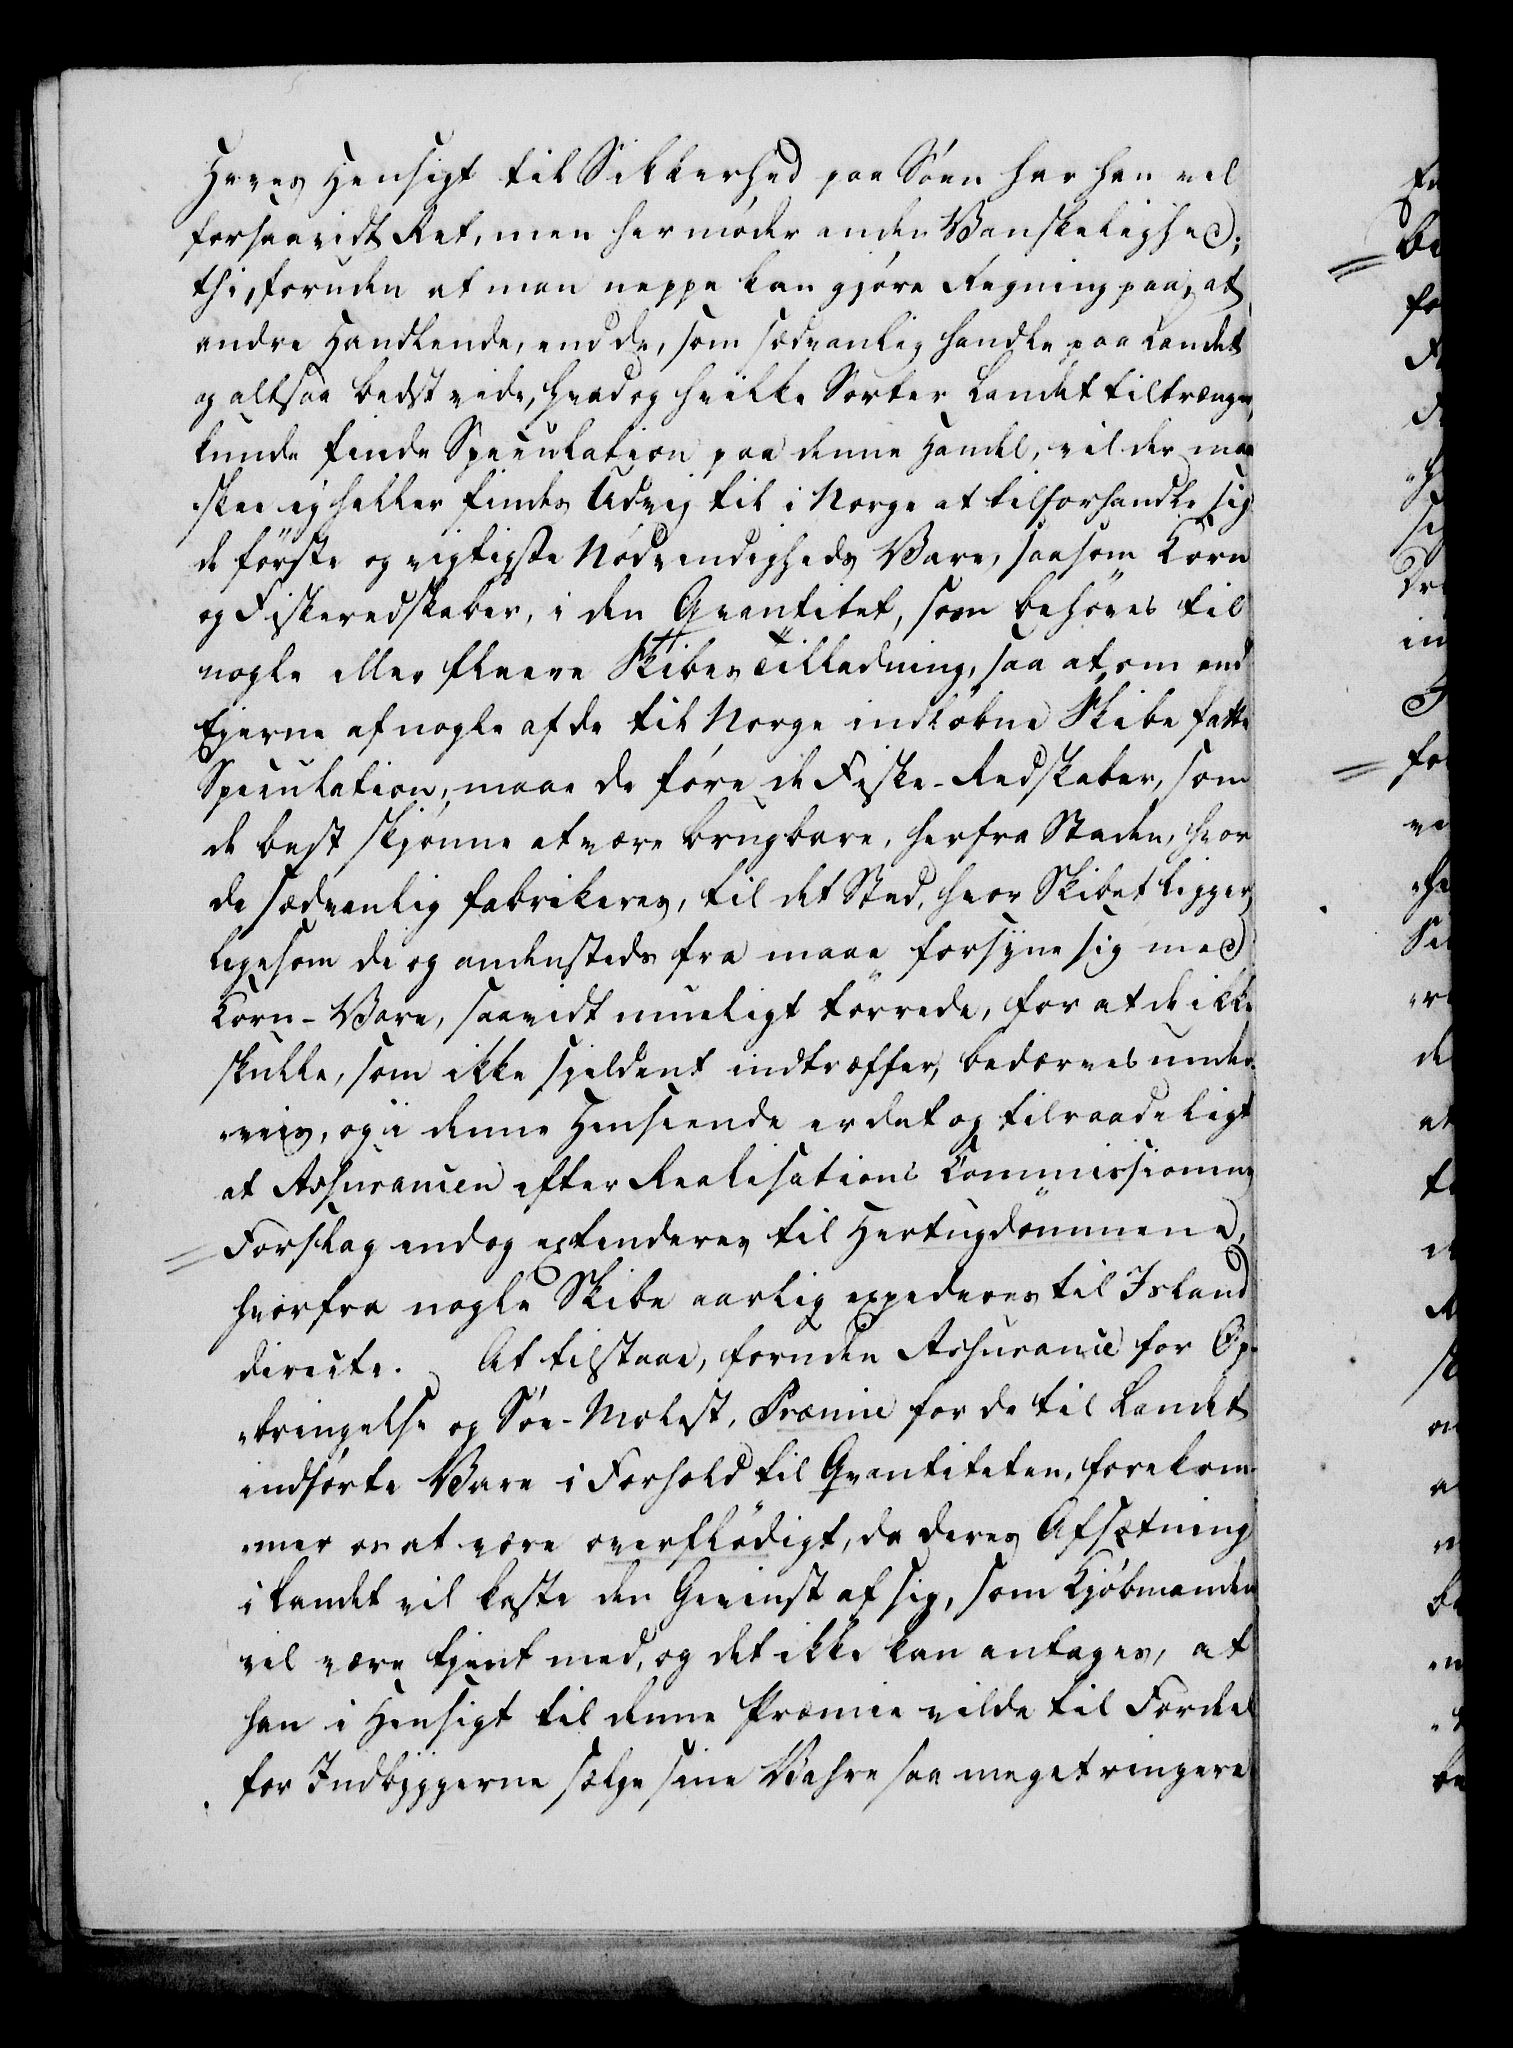 Haves Hensigt til Sikkerhed paa Söen har han vel
forsaavidt Ret, men her möder anden Vanskelighed;
thi, foruden at man neppe kan gjöre Regning paa, at
andre Handlende, end de, som sædvanlig handle paa Landet
og altsaa bedst vide, hvad og hvilke Sorter Landet tiltrænger,
kunde finde Speculation paa denne Handel, vil der maa
skee ej heller findes Udvej til i Norge at tilforhandle sig
de förste og vigtigste Nödvendigheds Vare, saasom Korn
og Fiskeredskaber, i den Qvantitet, som behöves til
nogle eller fleere Skibes Tilladning, saa at, om end
Ejerne af nogle af de til Norge indlöbne Skibe fatte
Speculation, maae de före de Fiske-Redskaber, som
de best skjönne at være brugbare, herfra Staden, hvor
de sædvanlig fabrikeres, til det Sted, hvor Skibet ligger,
ligesom de og andensteds fra maae forsyne sig med
Korn-Vare, saavidt mueligt törrede, for at de ikke
skulle, som ikke sjeldent indtræffer, bedærves under-
"veis, og i denne Henseende er det og tilraadeligt
at Assurancen efter Realisations Commissionens
Forslag endog extenderes til Hertugdömmene,
hvorfra nogle Skibe aarlig expederes til Island
directe. At tilstaae, foruden Assurance for Op-
"bringelse og Söe-Molest, Præmie for de til Landet
indförte Vare i Forhold til Qvantiteten, forekom-
"mer os at være overflödigt, da deres Afsætning
i Landet vil kaste den Gevinst af sig, som Kjöbmanden
vil være tjent med, og det ikke kan antages, at
han i Hensigt til denne Præmie vilde til Fordeel
for Indbyggerne sælge sine Vahre saa meget ringere